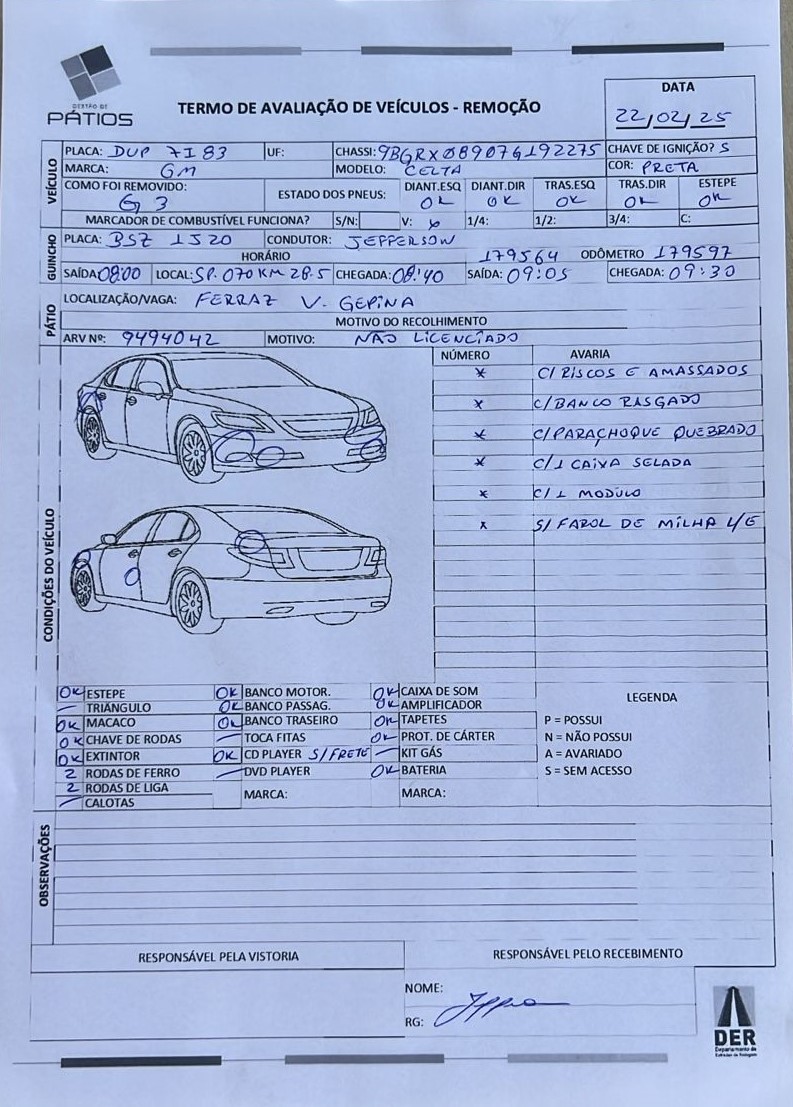 GESTÃO DE
PÁTIOS
TERMO DE AVALIAÇÃO DE VEÍCULOS - REMOÇÃO
DATA
22/02/25
VEÍCULO
PLACA: DUP 7I83 UF: CHASSI: 9BGRXØ8907G192275 CHAVE DE IGNIÇÃO? S
MARCA: GM MODELO: CELTA COR: PRETA
COMO FOI REMOVIDO: G3 ESTADO DOS PNEUS: DIANT.ESQ OK DIANT.DIR OK TRAS.ESQ OK TRAS.DIR OK ESTEPE OK
MARCADOR DE COMBUSTÍVEL FUNCIONA? S/N: V: 1/4: 1/2: 3/4: C:
GUINCHO
PLACA: BSZ 1J20 CONDUTOR: JEPPERSON
HORÁRIO 179564 ODÔMETRO 179597
SAÍDA: 08:00 LOCAL: SP. 070 KM 28.5 CHEGADA: 08:40 SAÍDA: 09:05 CHEGADA: 09:30
PÁTIO
LOCALIZAÇÃO/VAGA: FERRAZ V. GEPINA
MOTIVO DO RECOLHIMENTO
ARV Nº: 9494042 MOTIVO: NÃO LICENCIADO
CONDIÇÕES DO VEÍCULO
NÚMERO AVARIA
* C/ RISCOS E AMASSADOS
* C/ BANCO RASGADO
* C/ PARACHOQUE QUEBRADO
* C/ 1 CAIXA SELADA
* C/ 1 MODULO
x S/ FAROL DE MILHA L/E
OK ESTEPE OK BANCO MOTOR. OK CAIXA DE SOM
— TRIÂNGULO OK BANCO PASSAG. OK AMPLIFICADOR
OK MACACO OK BANCO TRASEIRO OK TAPETES
OK CHAVE DE RODAS — TOCA FITAS OK PROT. DE CÁRTER
OK EXTINTOR OK CD PLAYER S/ FRETE — KIT GÁS
2 RODAS DE FERRO — DVD PLAYER OK BATERIA
2 RODAS DE LIGA MARCA: MARCA:
— CALOTAS
LEGENDA
P = POSSUI
N = NÃO POSSUI
A = AVARIADO
S = SEM ACESSO
OBSERVAÇÕES
RESPONSÁVEL PELA VISTORIA RESPONSÁVEL PELO RECEBIMENTO
NOME:
RG:
DER
Departamento de
Estradas de Rodagem